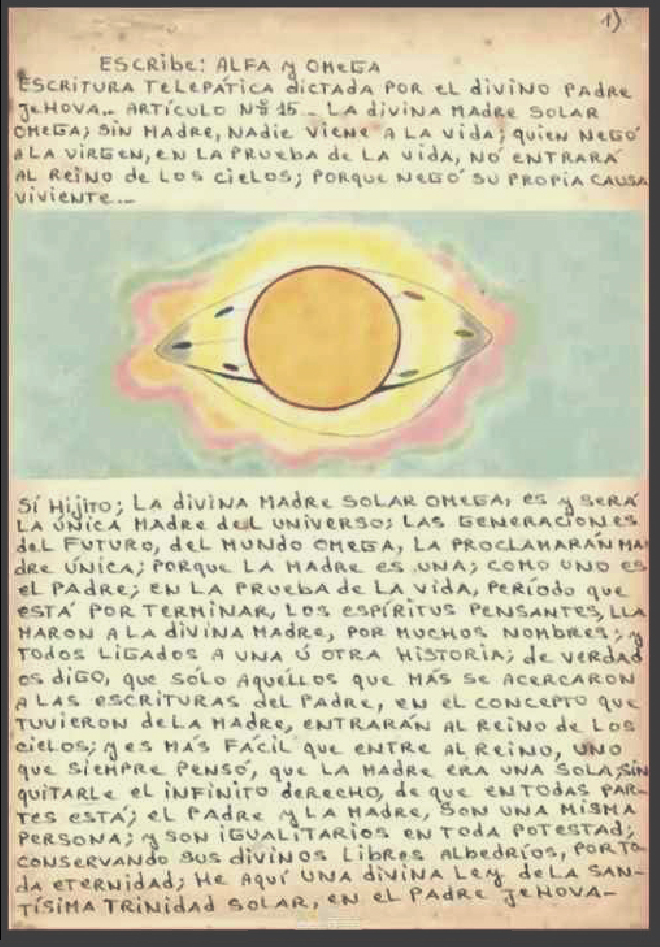 1)
ESCRibE: ALFA y OMEGA
ESCRITURA TELEPÁTICA dICTADA POR EL diviNO PADRE
JEHOVA.- ARTÍCULO Nº 15.- LA diviNA MADRE SOLAR
OMEGA; SIN MADRE, NADIE VIENE A LA VIDA; QUIEN NEGÓ
A LA VIRGEN, EN LA PRUEBA de LA VIDA, NO ENTRARÁ
AL REINO de LOS CIELOS; PORQUE NEGÓ SU PROPIA CAUSA
VIVIENTE.-
SÍ HIJITO; LA diviNA MADRE SOLAR OMEGA, ES y SERÁ
LA ÚNICA MADRE dEL UNIVERSO; LAS GENERACIONES
dEL FUTURO, dEL MUNDO OMEGA, LA PROCLAMARÁN MA-
dRE ÚNICA; PORQUE LA MADRE ES UNA; COMO UNO ES
EL PADRE; EN LA PRUEBA de LA VIDA, PERÍODO QUE
ESTÁ POR TERMINAR, LOS ESPÍRITUS PENSANTES, LLA
MARON A LA diviNA MADRE, POR MUCHOS NOMBRES; y
TODOS LIGADOS A UNA Ú OTRA HISTORIA; de VERDAD
OS diGO, QUE SÓLO AQUÉLLOS QUE MÁS SE ACERCARON
A LAS ESCRITURAS dEL PADRE, EN EL CONCEPTO QUE
TUVIERON dELA MADRE, ENTRARÁN AL REINO de LOS
CIELOS; y ES MÁS FÁCIL QUE ENTRE AL REINO, UNO
QUE SIEMPRE PENSÓ, QUE LA MADRE ERA UNA SOLA, SIN
QUITARLE EL INFINITO dERECHO, de QUE EN TODAS PAR-
TES ESTÁ; EL PADRE y LA MADRE, SON UNA MISMA
PERSONA; y SON IGUALITARIOS EN TODA POTESTAD;
CONSERVANDO SUS diviNOS LIBRES ALBEDRÍOS, POR TO-
dA ETERNIDAD; HE AQUÍ UNA diviNA LEY dELA SAN-
TÍSIMA TRINIDAD SOLAR, EN EL PADRE JEHOVA-